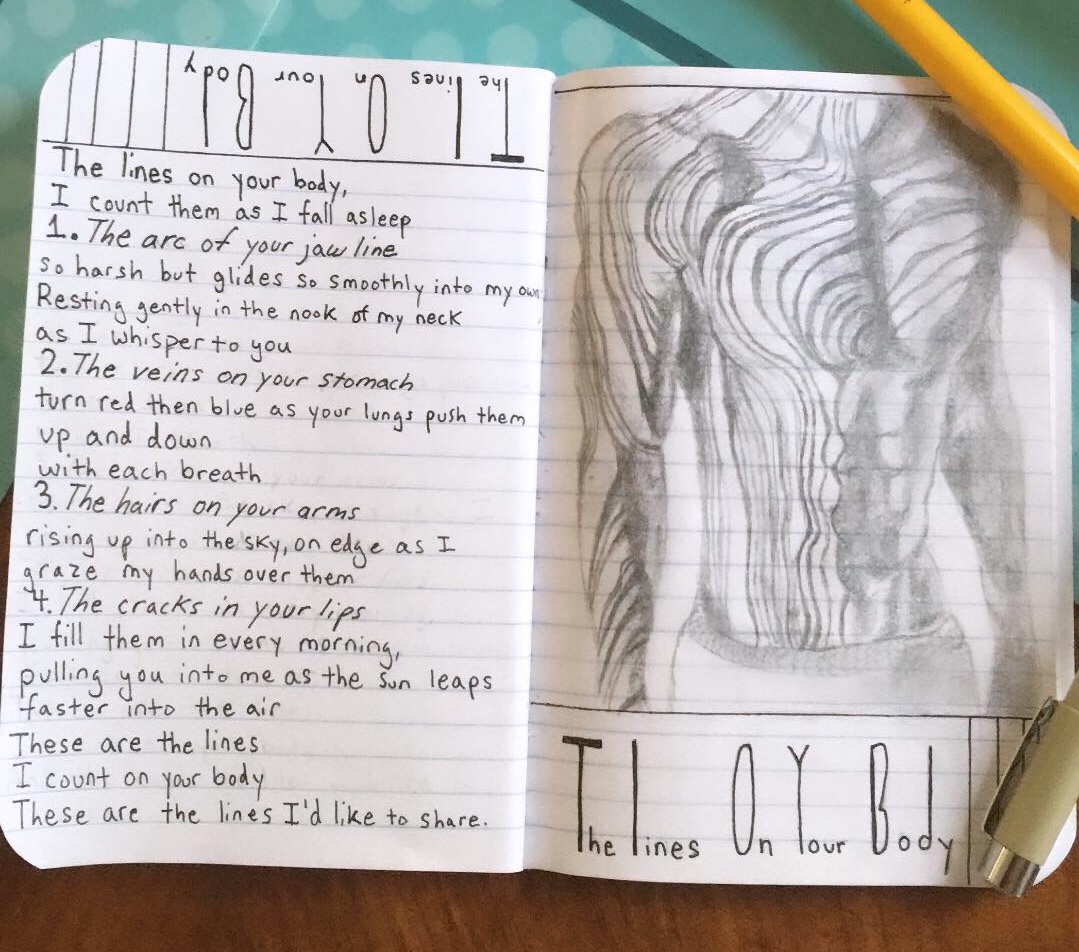 The lines On Your Body
The lines on your body,
I count them as I fall asleep
1. The arc of your jaw line
so harsh but glides so smoothly into my own
Resting gently in the nook of my neck
as I whisper to you
2. The veins on your stomach
turn red then blue as your lungs push them
up and down
with each breath
3. The hairs on your arms
rising up into the sky, on edge as I
graze my hands over them
4. The cracks in your lips
I fill them in every morning,
pulling you into me as the sun leaps
faster into the air
These are the lines
I count on your body
These are the lines I'd like to share.
The lines On Your Body